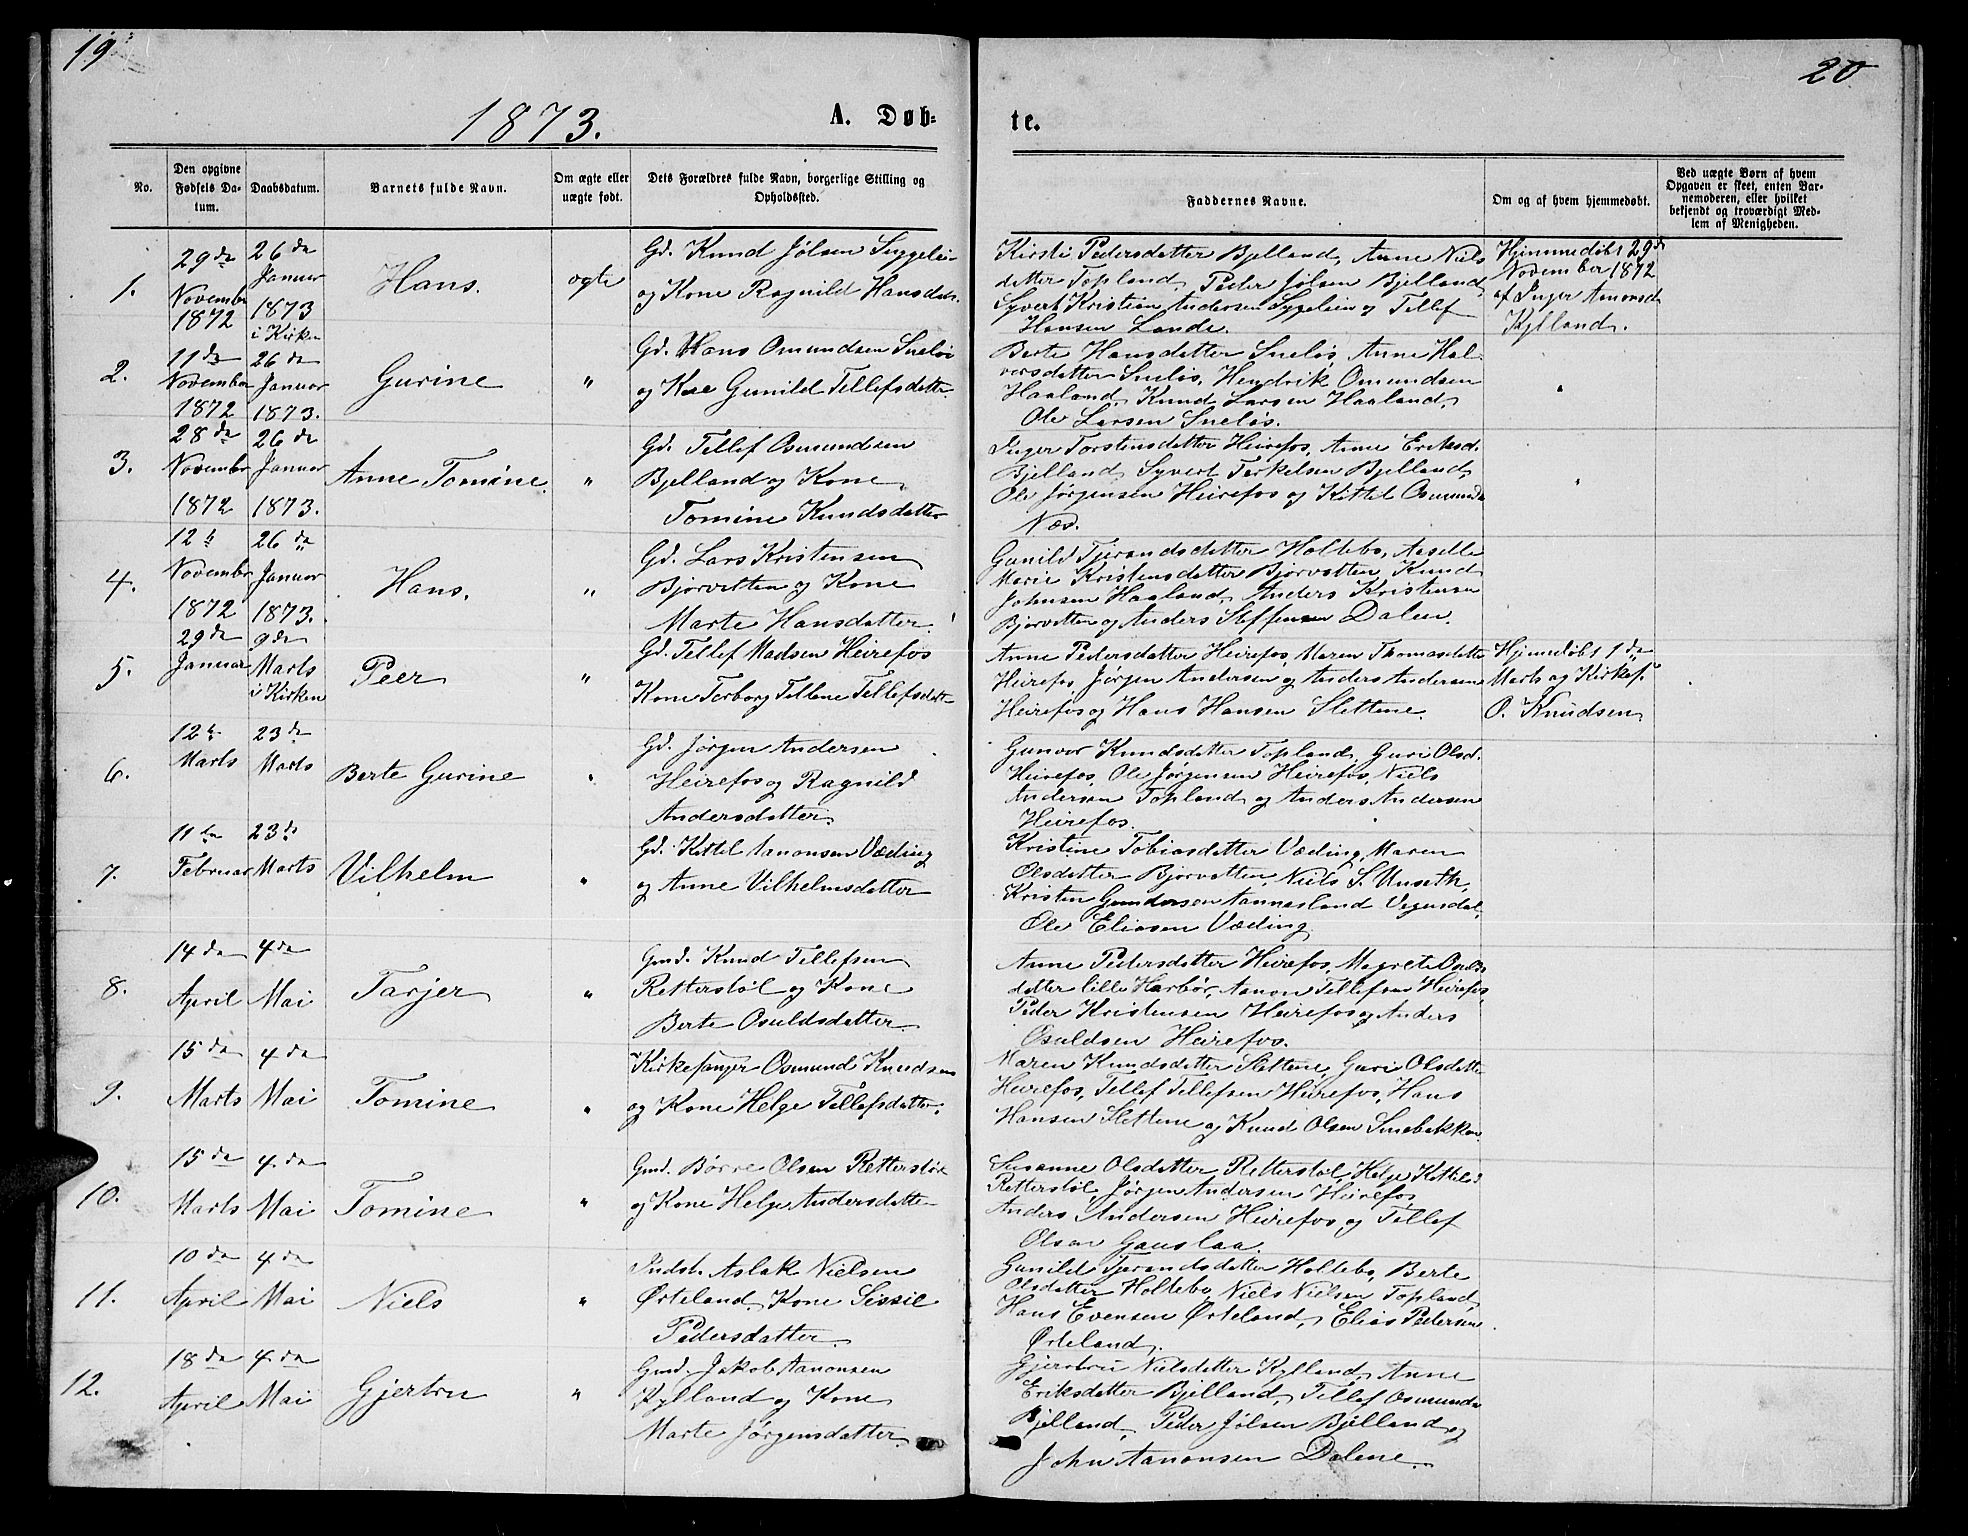 19
20
1873.
A. Døb=
te.
No.
Den opgivne Fødsels Da-tum.
Daabsdatum.
Barnets fulde Navn.
Om ægte eller uægte født.
Dets Forældres fulde Navn, borgerlige Stilling og Opholdssted.
Faddernes Navne.
Om og af hvem hjemmedøbt.
Ved uægte Børn af hvem Opgaven er skeet, enten Bar-nemoderen, eller hvilket bekjendt og troværdigt Med-lem af Menigheden.
1.
29de
November
1872
26de
Januar
1873
i Kirken
Hans.
ægte
Gd. Knud Jølsen
og Kone Ragnild Hansdatr.
Kirsti Pedersdatter Bjelland, Anne Niels
datter Topland, Peder Jølsen Bjelland,
Syvert Kristian Andersen Sygelein og Tellef
Hansen Lande.
Hjemmedøbt 29de
November 1872
af Inger Amonsd.
Kylland.
2.
11de
November
1872
26de
Januar
1873.
Gurine
"
Gd. Hans Omundsen Sneløs
og Kone Gunild Tellefsdatter
Berte Hansdatter Sneløs, Anne Hal-
vorsdatter Sneløs, Hendrik Omundsen
Haaland, Knud Larsen Haaland,
Ole Larsen Sneløs.
"
3.
28de
November
1872
26de
Januar
1873.
Anne Tomine
"
Gd. Tellef Osmundsen
Bjelland og Kone
Tomine Knudsdatter
Inger Torstensdatter Heirefos, Anne Eriksd.
Bjelland, Syvert Terkelsen Bjelland,
Ole Jørgensen Heirefos og Kittel Osmunds
Næs.
"
4.
12te
November
1872
26de
Januar
1873.
Hans.
"
Gd. Lars Kristensen
Bjorvatten og Kone
Marte Hansdatter
Gunild Tjerandsdatter Holtebo, Aaselle
Marie Kristensdatter Bjorvatten, Knud
Johnsen Haaland, Anders Kristensen
Bjorvatten og Anders Steffensen Dalen.
5.
29de
Januar
9de
Marts
i Kirken
Peer
"
Gd. Tellef Madsen Heirefos
Kone Torborg Tellene Tellefsdatr
Anne Pedersdatter Heirefos, Maren Thomasdatter
Heirefos, Jørgen Andersen og Anders Andersen
Heirefos og Hans Hansen Slettene.
Hjemdøbt 1de
Marts af Kirkes.
O. Knudsen
6.
12te
Marts
23de
Marts
Berte Gurine
"
Gd. Jørgen Andersen
Heirefos og Ragnild
Andersdatter.
Gunvor Knudsdatter Topland, Guri Olsd.
Heirefos, Ole Jørgensen Heirefos, Niels
Andersen Topland og Anders Andersen
Heirefos.
7.
11te
Februar
23de
Marts
Vilhelm
"
Gd. Kittel Aanonsen Væding
og Anne Vilhelmsdatter
Kristine Tobiasdatter Væding, Maren
Olsdatter Bjorvatten, Niels S. Unseth,
Kristen Gundersen Aannesland Vegusdal,
Ole Eliasen Væding
8.
14de
April
4de
Mai
Tarjer
"
Gmd. Knud Tellefsen
Retterstøl og Kone
Berte Osuldsdatter
Anne Pedersdatter Heirefos, Magrete Osulds
datter lille Harbør, Aanon Tellefsen Heirefos,
Peder Kristensen Heirefos og Anders
Osuldsen Heirefos.
9.
15de
Marts
4de
Mai
Tomine
"
Kirkesanger Osmund Knudsen
og Kone Helge Tellefsdatter.
Maren Knudsdatter Slettene, Guri Olsdatter
Heirefos, Tellef Tellefsen Heirefos, Hans
Hansen Slettene og Knud Olsen Smebakken
10.
15de
Marts
4de
Mai
Tomine
"
Gmd. Børre Olsen Retterstøl
og Kone Helge Andersdatter
Susanne Olsdatter Retterstøl, Helge Kittelsd
Retterstøl, Jørgen Andersen Heirefos,
Anders Andersen Heirefos og Tellef
Olsen Gauslaa.
11.
10de
April
4de
Mai
Niels
"
Indst. Aslak Nielsen
Ørteland, Kone Sissel
Pedersdatter
Gunild Tjerandsdatter Holtebo, Berte
Olsdatter Holtebo, Niels Nielsen Topland,
Hans Evensen Ørteland, Elias Pedersen
Ørteland.
12.
18de
April
4de
Mai
Gjertru
"
Gmd. Jakob Aanonsen
Kylland og Kone
Marte Jørgensdatter.
Gjertru Nielsdatter Kylland, Anne
Eriksdatter Bjelland, Tellef Osmunds
Bjelland, Peder Jølsen Bjelland og
John Aanonsen Dalene.